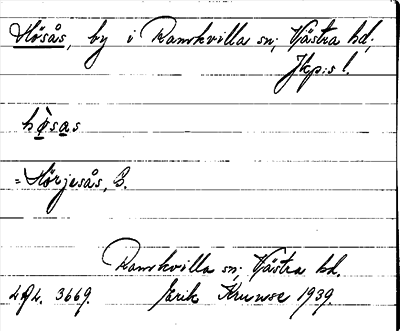 Hösås, by i Ramkvilla sn; Västra hd;
Jkp:s l.
hø̀sas
= Hörjesås, B.
Ramkvilla sn; Västra hd.
Erik Krunse 1939.